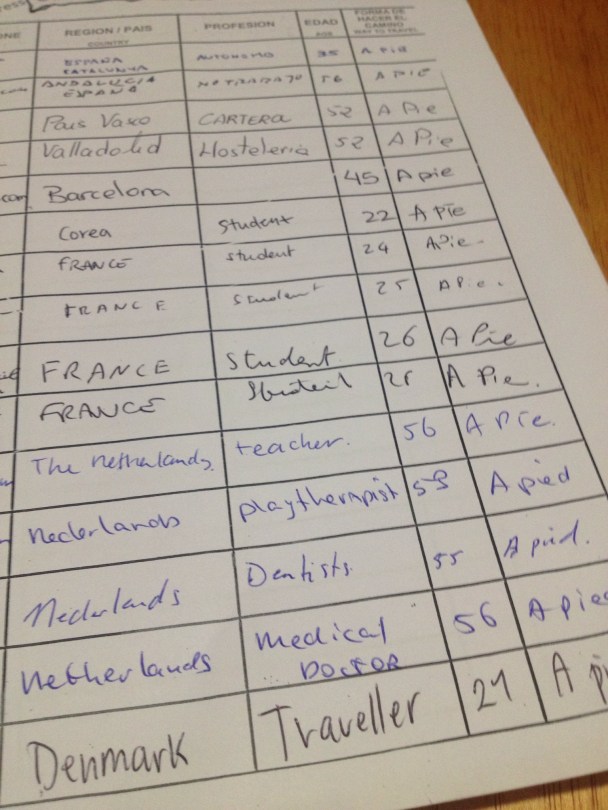 REGION / PAIS PROFESION EDAD FORMA DE HACER EL CAMINO
COUNTRY AGE WAY TO TRAVEL
ESPAÑA CATALUNYA AUTONOMO A PIE
ANDALUCIA ESPAÑA NO TRABAJO 56 A PIE
Pais Vasco CARTERA 52 A Pie
Valladolid Hosteleria 52 A Pie
com Barcelona 45 A pie
Corea Student 22 A Pie
FRANCE student 24 A Pie
FRANCE Student 25 A Pie
FRANCE Student 26 A Pie
FRANCE Student A Pie.
The Netherlands teacher. 56 A Pie.
Nederlands playtherapist A pied
Nederlands Dentists 55 A pied.
Netherlands medical DOCTOR 56 A pied
Denmark Traveller 21 A pi